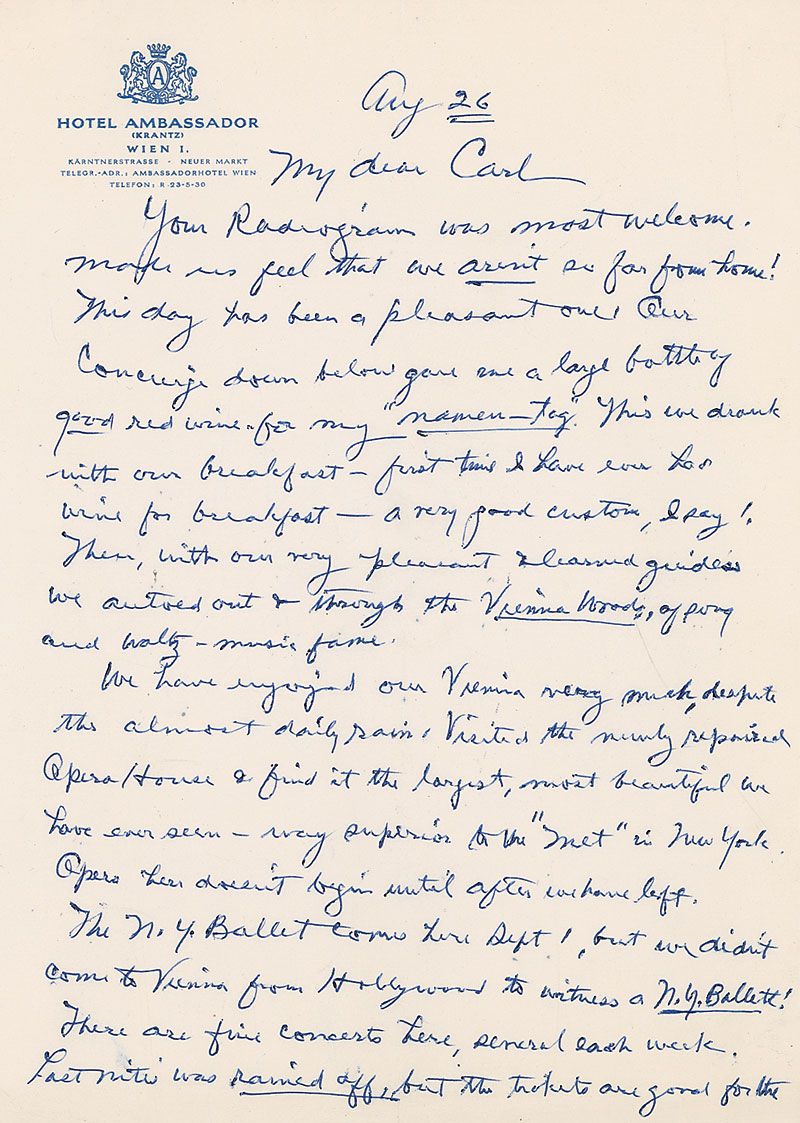 A
HOTEL AMBASSADOR
(KRANTZ)
WIEN I.
KÄRNTNERSTRASSE · NEUER MARKT
TELEGR.-ADR.: AMBASSADORHOTEL WIEN
TELEFON: R-23-5-30
Aug 26
My dear Carl
Your Radiogram was most welcome.
Made us feel that we aren't so far from home!
This day has been a pleasant one. Our
Concierge down below gave me a large bottle of
good red wine for my "namen-tag". This we drank
with our breakfast – first time I have ever had
wine for breakfast – a very good custom, I say!
Then, with our very pleasant & learned guide
we autoed out & through the Vienna Woods, of song
and waltz-music fame.
We have enjoyed our Vienna very much, despite
the almost daily rain. Visited the newly repaired
Opera House & find it the largest, most beautiful we
have ever seen – way superior to the "Met" in New York.
Opera here doesn't begin until after we have left.
The N.Y. Ballet comes here Sept 1, but we didn't
come to Vienna from Hollywood to witness a N.Y. Ballett!
There are fine concerts here, several each week.
Last nite's was rained off, but the tickets are good for the